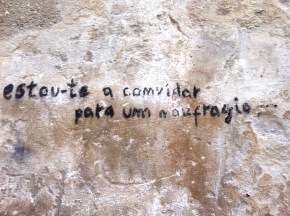 estou-te a convidar
para um naufragio...